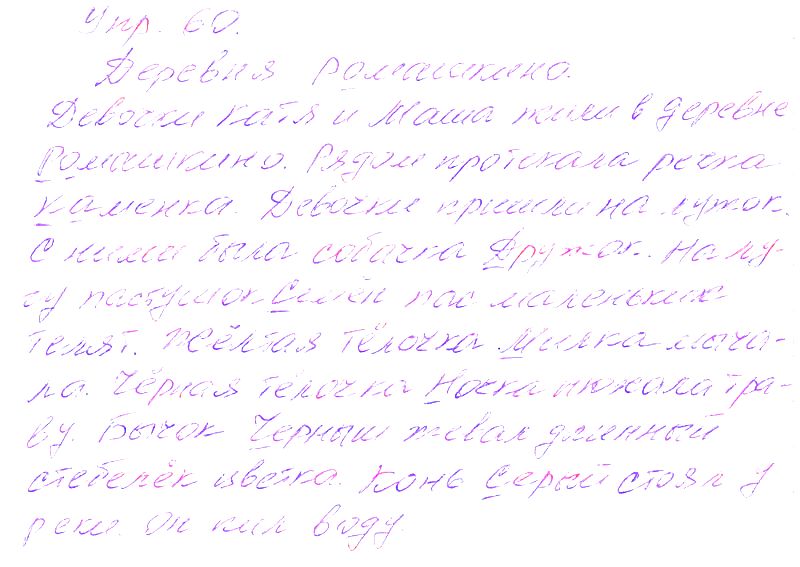 Упр. 60.
Деревня Ромашкино.
Девочки Катя и Маша жили в деревне
Ромашкино. Рядом протекала речка
Каменка. Девочки пришли на лужок.
С ними была собачка Дружок. На лу-
гу пастушок Семён пас маленьких
телят. Жёлтая тёлочка Милка мыча-
ла. Чёрная тёлочка Ночка нюхала тра-
ву. Бычок Черныш жевал длинный
стебелёк цветка. Конь Серый стоял у
реки. Он пил воду.